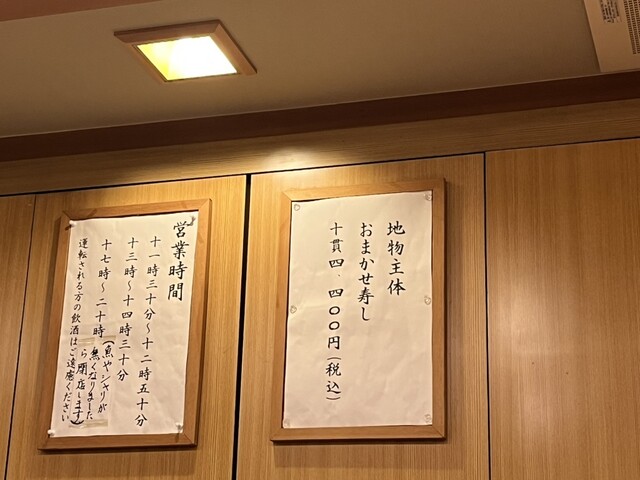 営業時間
十一時三十分〜十二時五十分
十三時〜十四時三十分
十七時〜二十時(魚やシャリが
無くなりました
ら閉店します)
運転される方の飲酒はご遠慮ください
地物主体
おまかせ寿し
十貫四、四〇〇円(税込)